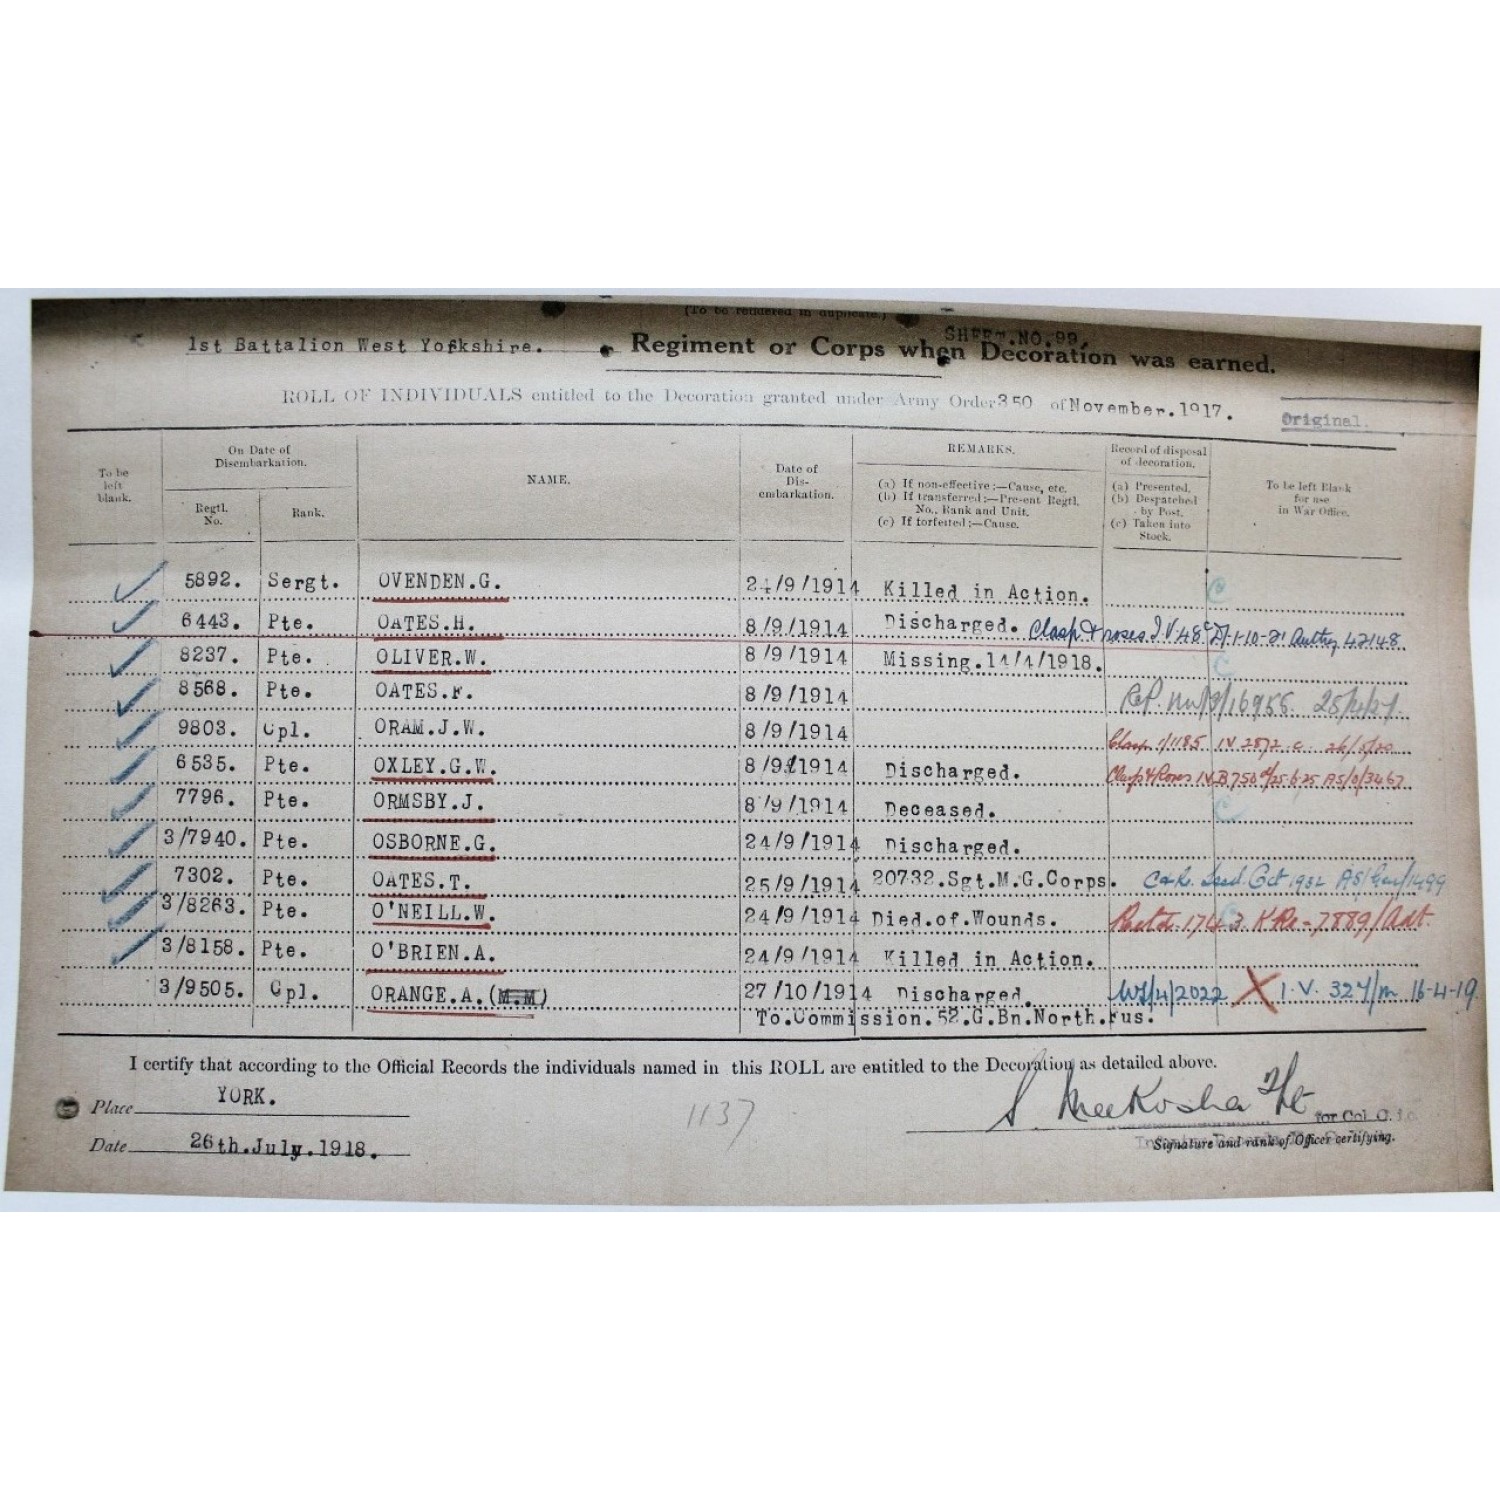 (To be rendered in duplicate.)
SHEET.NO.99.
1st Battalion West Yorkshire. Regiment or Corps when Decoration was earned.
ROLL OF INDIVIDUALS entitled to the Decoration granted under Army Order 350 of November.1917.
Original.
To be left blank.
On Date of Disembarkation.
Regtl. No.
Rank.
NAME.
Date of Dis-embarkation.
REMARKS.
(a) If non-effective:—Cause, etc.
(b) If transferred:—Present Regtl. No., Rank and Unit.
(c) If forfeited:—Cause.
Record of disposal of decoration.
(a) Presented.
(b) Despatched by Post.
(c) Taken into Stock.
To be left Blank for use in War Office.
5892. Sergt. OVENDEN.G. 24/9/1914 Killed in Action. C
6443. Pte. OATES.H. 8/9/1914 Discharged. Clasp & roses I.V.48 1-10-21 42148
8237. Pte. OLIVER.W. 8/9/1914 Missing.14/4/1918. C
8568. Pte. OATES.F. 8/9/1914 16956
9803. Cpl. ORAM.J.W. 8/9/1914 Clasp 1/1185 IV 2872 26/5/20
6535. Pte. OXLEY.G.W. 8/9/1914 Discharged. Clasp & Roses I.V.B 750
7796. Pte. ORMSBY.J. 8/9/1914 Deceased. C
3/7940. Pte. OSBORNE.G. 24/9/1914 Discharged.
7302. Pte. OATES.T. 25/9/1914 20732.Sgt.M.G.Corps. C&R. Oct 1932
3/8263. Pte. O'NEILL.W. 24/9/1914 Died.of.Wounds. 7889/Adt.
3/8158. Pte. O'BRIEN.A. 24/9/1914 Killed in Action.
3/9505. Cpl. ORANGE.A.(M.M) 27/10/1914 Discharged. 4/2022 X I.V. 16-4-19
To.Commission.52.G.Bn.North.Fus.
I certify that according to the Official Records the individuals named in this ROLL are entitled to the Decoration as detailed above.
Place YORK.
1137
S. Meekosha
for Col.
Date 26th.July.1918.
Signature and rank of Officer certifying.